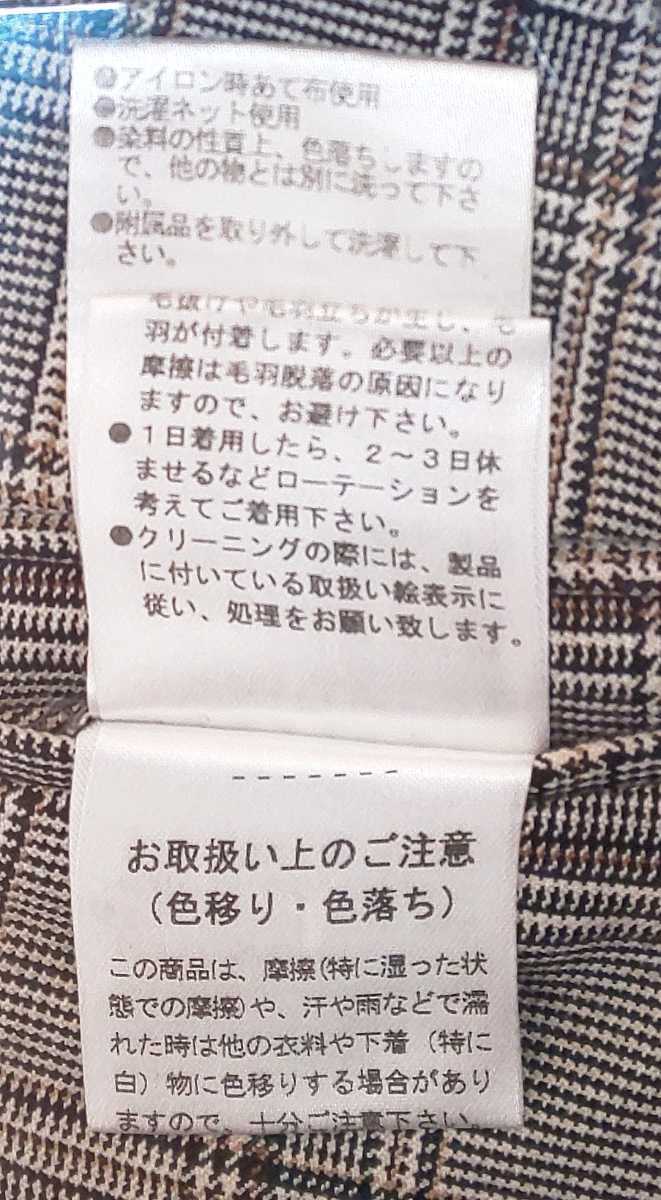 ●アイロン時あて布使用
●洗濯ネット使用
●染料の性質上、色落ちしますの
で、他の物とは別に洗って下さ
い。
●附属品を取り外して洗濯して下
さい。
毛抜けや毛羽立ちが生じ、毛
羽が付着します。必要以上の
摩擦は毛羽脱落の原因になり
ますので、お避け下さい。
●1日着用したら、2〜3日休
ませるなどローテーションを
考えてご着用下さい。
●クリーニングの際には、製品
に付いている取扱い絵表示に
従い、処理をお願い致します。
お取扱い上のご注意
(色移り・色落ち)
この商品は、摩擦(特に湿った状
態での摩擦)や、汗や雨などで濡
れた時は他の衣料や下着(特に
白)物に色移りする場合があり
ますので、十分ご注意下さい。